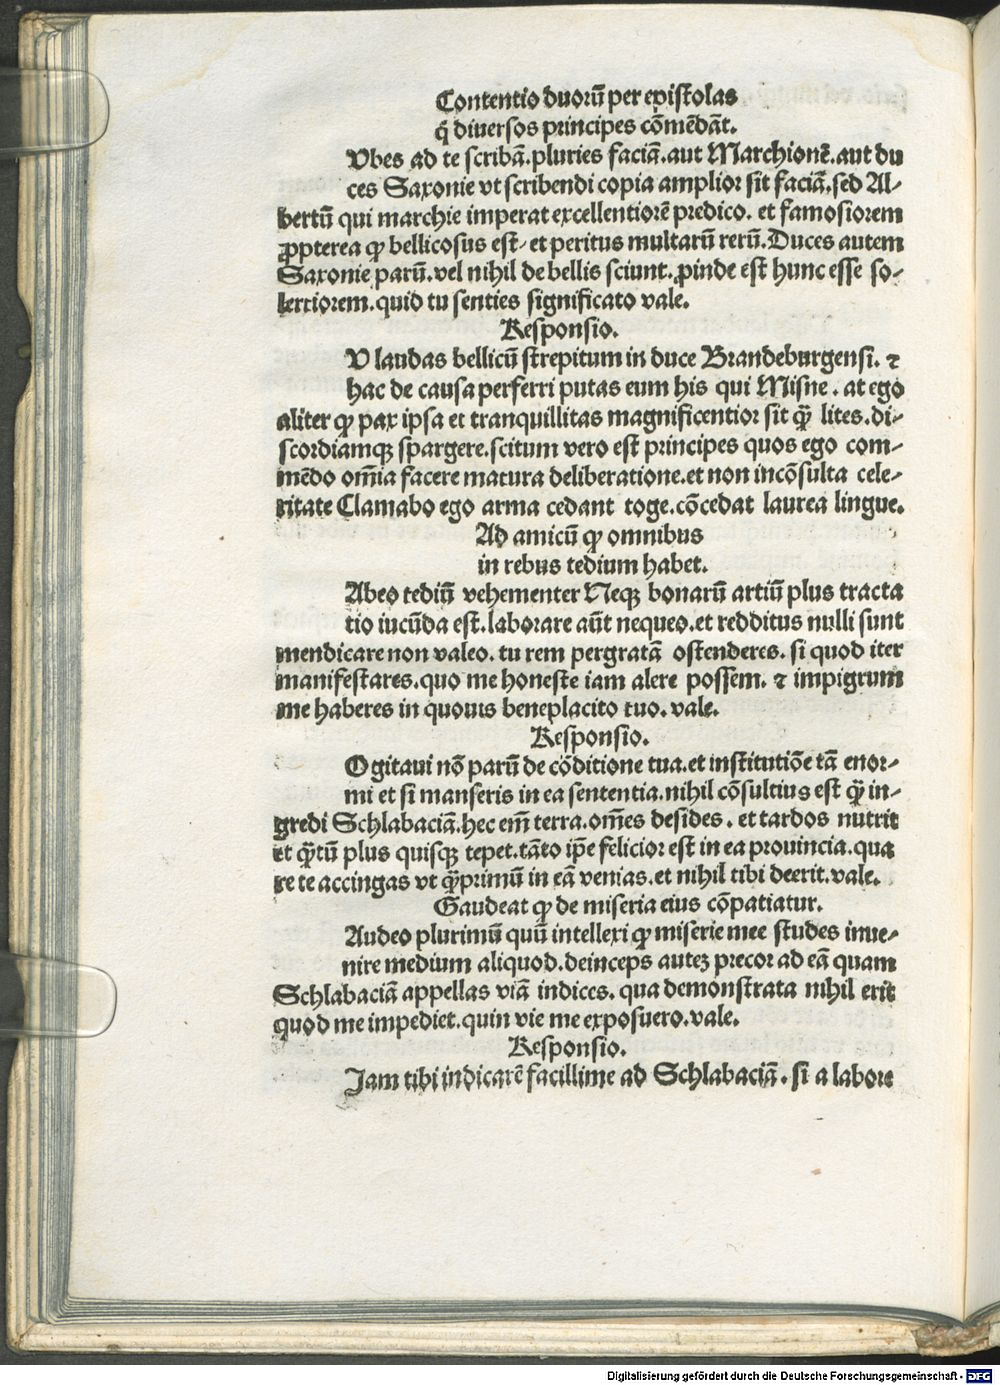 Contentio duorū per epistolas
q̄ diuersos principes cōmēdāt.
Vbes ad te scribā. pluries faciā. aut Marchionē. aut du
ces Saxonie vt scribendi copia amplior sit faciā. sed Al-
bertū qui marchie imperat excellentiorē predico. et famosiorem
ꝓpterea ꝙ bellicosus est, et peritus multarū rerū. Duces autem
Saxonie parū. vel nihil de bellis sciunt. ꝓinde est hunc esse so-
lertiorem. quid tu senties significato vale.
Responsio.
V laudas bellicū strepitum in duce Brandeburgensi. ⁊
hac de causa perferri putas eum his qui Misne. at ego
aliter ꝙ pax ipsa et tranquillitas magnificentior sit q̄ȝ lites. di-
scordiamqȝ spargere. scitum vero est principes quos ego com-
mēdo om̄ia facere matura deliberatione. et non incōsulta cele-
ritate Clamabo ego arma cedant toge. cōcedat laurea lingue.
Ad amicū ꝙ omnibus
in rebus tedium habet.
Abeo tediū vehementer Neqȝ bonarū artiū plus tracta
tio iucūda est. laborare aūt nequeo. et redditus nulli sunt
mendicare non valeo. tu rem pergratā ostenderes. si quod iter
manifestares. quo me honeste iam alere possem. ⁊ impigrum
me haberes in quouis beneplacito tuo. vale.
Responsio.
Ogitaui nō parū de cōditione tua. et institutiōe tā enor-
mi et si manseris in ea sententia. nihil cōsultius est q̄ȝ in-
gredi Schlabaciā. hec em̄ terra. om̄es desides. et tardos nutrit
et q̄ȝtū plus quisqȝ tepet. tāto ip̄e felicior est in ea prouincia. qua
re te accingas vt q̄ȝprimū in eā venias. et nihil tibi deerit. vale.
Gaudeat ꝙ de miseria eius cōpatiatur.
Audeo plurimū quū intellexi ꝙ miserie mee studes inue-
nire medium aliquod. deinceps auteȝ precor ad eā quam
Schlabaciā appellas viā indices. qua demonstrata nihil erit
quod me impediet. quin vie me exposuero. vale.
Responsio.
Jam tibi indicarē facillime ad Schlabaciā. si a labore
Digitalisierung gefördert durch die Deutsche Forschungsgemeinschaft - DFG